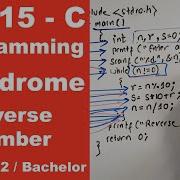 15 - C
gramming
drome
verse
mber
2 / Bachelor
clude <stdio.h>
main()
{
int n, r, s=0;
printf("Enter a
scanf("%d",
while (n!=0)
{
r = n%10;
s = s*10+r;
n = n/10;
}
printf("Reverse
return 0;
}